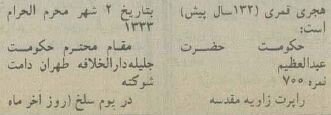 هجری قمری (۱۳۲سال پیش)
است:
حکومت حضرت
عبدالعظیم
نمره ۷۰۰
راپرت زاویه مقدسه
بتاریخ ۲ شهر محرم الحرام
۱۳۳۳
مقام محترم حکومت
جلیله دارالخلافه طهران دامت
شوکته
در یوم سلخ (روز آخر ماه